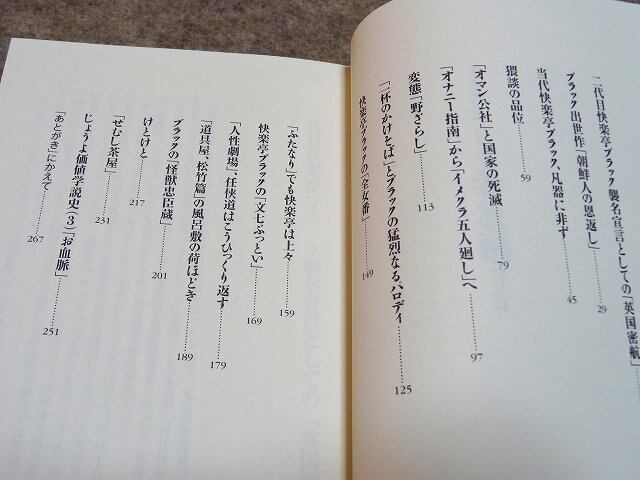 二代目快楽亭ブラック襲名宣言としての「英国密航」
ブラック出世作「朝鮮人の恩返し」……29
当代快楽亭ブラック、凡器に非ず……45
猥談の品位……59
「オマン公社」と国家の死滅……79
「オナニー指南」から「イメクラ五人廻し」へ……97
変態「野ざらし」……113
「一杯のかけそば」とブラックの猛烈なるパロディ……125
快楽亭ブラックの「全女番」……149
「ふたなり」でも快楽亭は上々……159
快楽亭ブラックの「文七ぶっとい」……169
「人性劇場」、任侠道はこうひっくり返す……179
「道具屋、松竹篇」の風呂敷の荷ほどき……189
ブラックの「怪獣忠臣蔵」……201
けとけと……217
「せむし茶屋」……231
じょうよ価値学説史（3）「お血脈」……251
「あとがき」にかえて……267